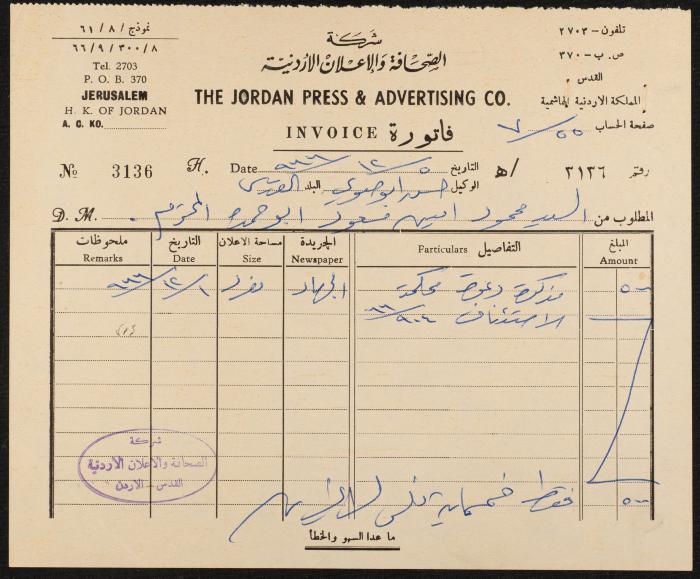 نموذج / ٨ / ٦١
٦٦ / ٩ / ٣٠٠ / ٨
Tel. 2703
P. O. B. 370
JERUSALEM
H. K. OF JORDAN
A. C. KO.
شركة
الصحافة والاعلان الاردنية
THE JORDAN PRESS & ADVERTISING CO.
INVOICE فاتورة
تلفون - ٢٧٠٣
ص. ب - ٣٧٠
القدس
المملكة الاردنية الهاشمية
صفحة الحساب ٧/٥٥
№ 3136 H. Date ٩٦٦/١٢/٥ التاريخ /ﻫ ٣١٣٦ رقم
الوكيل البلد القدس
D. M. المطلوب من السيد محمود امين مسعود ابو حمده المحترم .
ملحوظات التاريخ مساحة الاعلان الجريدة التفاصيل المبلغ
Remarks Date Size Newspaper Particulars Amount
٩٦٦/١٢/١ مفرد الجهاد مذكرة دعوة محكمة ٥٠٠
الاستئناف ٩٠٤/٦٦
شركة
الصحافة والاعلان الاردنية
القدس - الاردن
فقط خمسماية فلس لا غير ٥٠٠
ما عدا السهو والخطأ